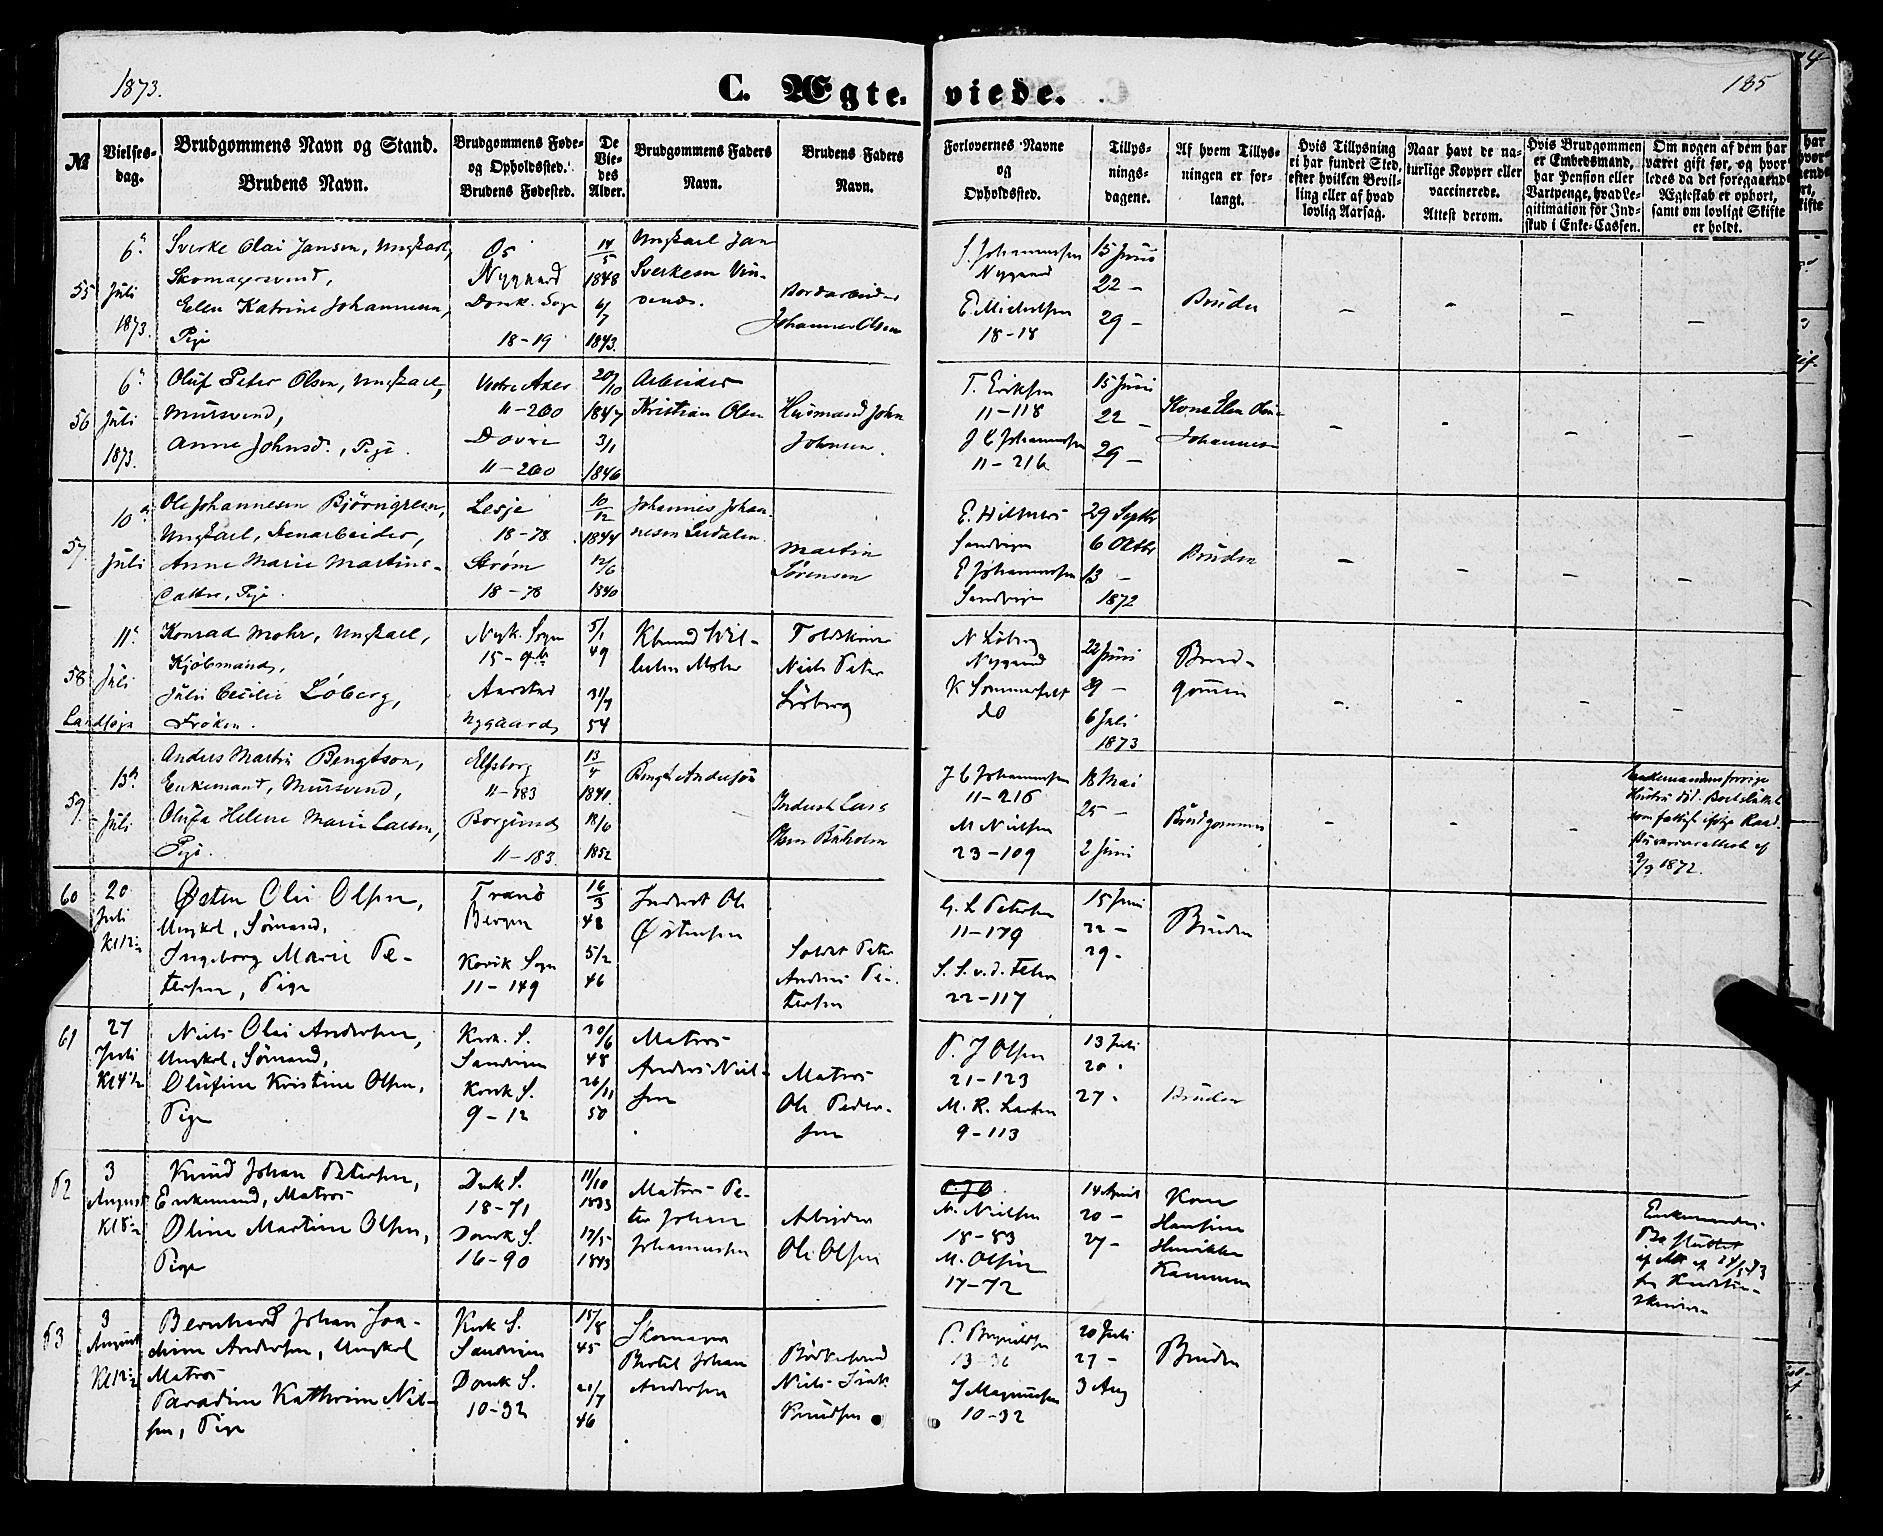 1873.
C. Ægte-viede.
185
№
Vielses-
dag.
Brudgommens Navn og Stand.
Brudens Navn.
Brudgommens Føde-
og Opholdssted.
Brudens Fødested.
De
Vie-
des
Alder.
Brudgommens Faders
Navn.
Brudens Faders
Navn.
Forlovernes Navne
og
Opholdssted.
Tillys-
nings-
dagene.
Af hvem Tillys-
ningen er for-
langt.
Hvis Tillysning
ei har fundet Sted,
efter hvilken Bevil-
ling eller af hvad
lovlig Aarsag.
Naar havt de na-
turlige Kopper eller
vaccinerede.
Attest derom.
Hvis Brudgommen
er Embedsmand,
har Pension eller
Vartpenge, hvad Le-
gitimation for Ind-
skud i Enke-Cassen.
Om nogen af dem har
været gift før, og hvor-
ledes da det foregaaende
Ægteskab er ophørt,
samt om lovligt Skifte
er holdt.
55
6
Juli
1873.
Sverke Olai Jansen, Ungkarl,
Skomagersvend,
Elen Katrine Johannesen,
Pige
Os
Nygaard
Domk. Sogn
18-19
14/5
1848
6/7
1843.
Ungkarl Jan
Sverkesen
Bordarbeider
Johannes Olsen
Johannessen
Nygaard
E. Michelsen
18-18
15 Juni
22 -
29 -
Bruden
56
6
Juli
1873.
Oluf Peter Olsen, Ungkarl,
Mursvend,
Anne Johnsd., Pige.
Vestre Aker
11-200
Dovre
11-200
20/10
1847
3/1
1846
Arbeider
Kristian Olsen
Husmand John
Johnsen.
T. Eriksen
11-118
J C Johannessen
11-216
15 Juni
22 -
29 -
Kone Elen
Johannesen
57
10
Juli
Ole Johannesen Bjørngreen,
Ungkarl, Stenarbeider,
Anne Marie Martins-
datter, Pige.
Lesje
18-78
Strøm
18-78
10/12
1844
12/6
1840
Johannes Johan-
nesen
Martin
Sørensen
E. Hilmers
Sandvigen
E Johannessen
Sandvigen
29 Septbr
6 Octbr
13 -
1872
Bruden
58
11
Juli
Konrad Mohr, Ungkarl,
Kjøbmand,
Julie Cecilie Løberg,
Frøken.
Nyk. Sogn
15-9b
Aarstad
Nygaard
5/1
49
31/7
54
Kbmd Wil-
helm Mohr
Niels Peter
Løberg
N Løberg
Nygaard
K Sommerfelt
do
22 Juni
29 -
6 Juli
1873
Brud-
gommen
59
13
Juli
Anders Martin Bengtson,
Enkemand, Mursvend,
Olufa Helene Marie Larsen,
Pige.
Elfsborg
11-183
Borgund
11-183.
13/4
1841.
18/6
1852
Bengt Anderson
Inderst Lars
J C Johannessen
11-216
M Nielsen
23-109
18 Mai
25 -
2 Juni
Brudgommen
Enkemandens forrige
Hustru død.
9/9 1872.
60
20
Juli
Kl 12½
Østen Olai Olsen,
Ungkrl, Sømand,
Ingeborg Marie Pe-
tersen, Pige
Tranø
Bergen
Korsk Sogn
11-149
16/3
48
5/2
46
Inderst Ole
Østensen
Soldat Peter
Andreas Pe-
tersen
G. L. Petersen
11-179
S. S. v. d. Fehr
22-117
15 Juni
22 -
29 -
Bruden
61
27
Juli
Kl 4½
Niels Olai Andersen,
Ungkrl, Sømand,
Olufine Kristine Olsen,
Pige
Korsk. S.
Sandvigen
Korsk S.
9-12
30/6
48
26/11
50
Matros
Anders Niel-
sen
Matros
Ole Peder-
sen
P. J Olsen
21-123
M. R. Larsen
9-113
13 Juli
20 -
27 -
Bruden
62
3
August
Knud Johan Petersen,
Enkemand, Matros
Oline Martine Olsen,
Pige
Domk S.
18-71
Domk S.
16-90
11/10
1833
1843
Matros Pe-
ter Johan
Johannessen
Arbeider
Ole Olsen
N. Nielsen
18-83
M. Olsen
17-72
14 April
20 -
27 -
Kone
Hansine
Henrikke
Enkemanden
63
3
August
Kl 12½
Bernhard Johan Joa-
chim Andersen, Ungkrl
Matros
Paradine Kathrine Niel-
sen, Pige
Korsk S.
Sandvigen
Domk S.
10-32
15/8
45
21/7
46
Skomager
Bertil Johan
Andersen
Bødkersvend
Niels Isak
Knudsen
J Magnussen
10-32
20 Juli
27 -
3 Aug
Bruden